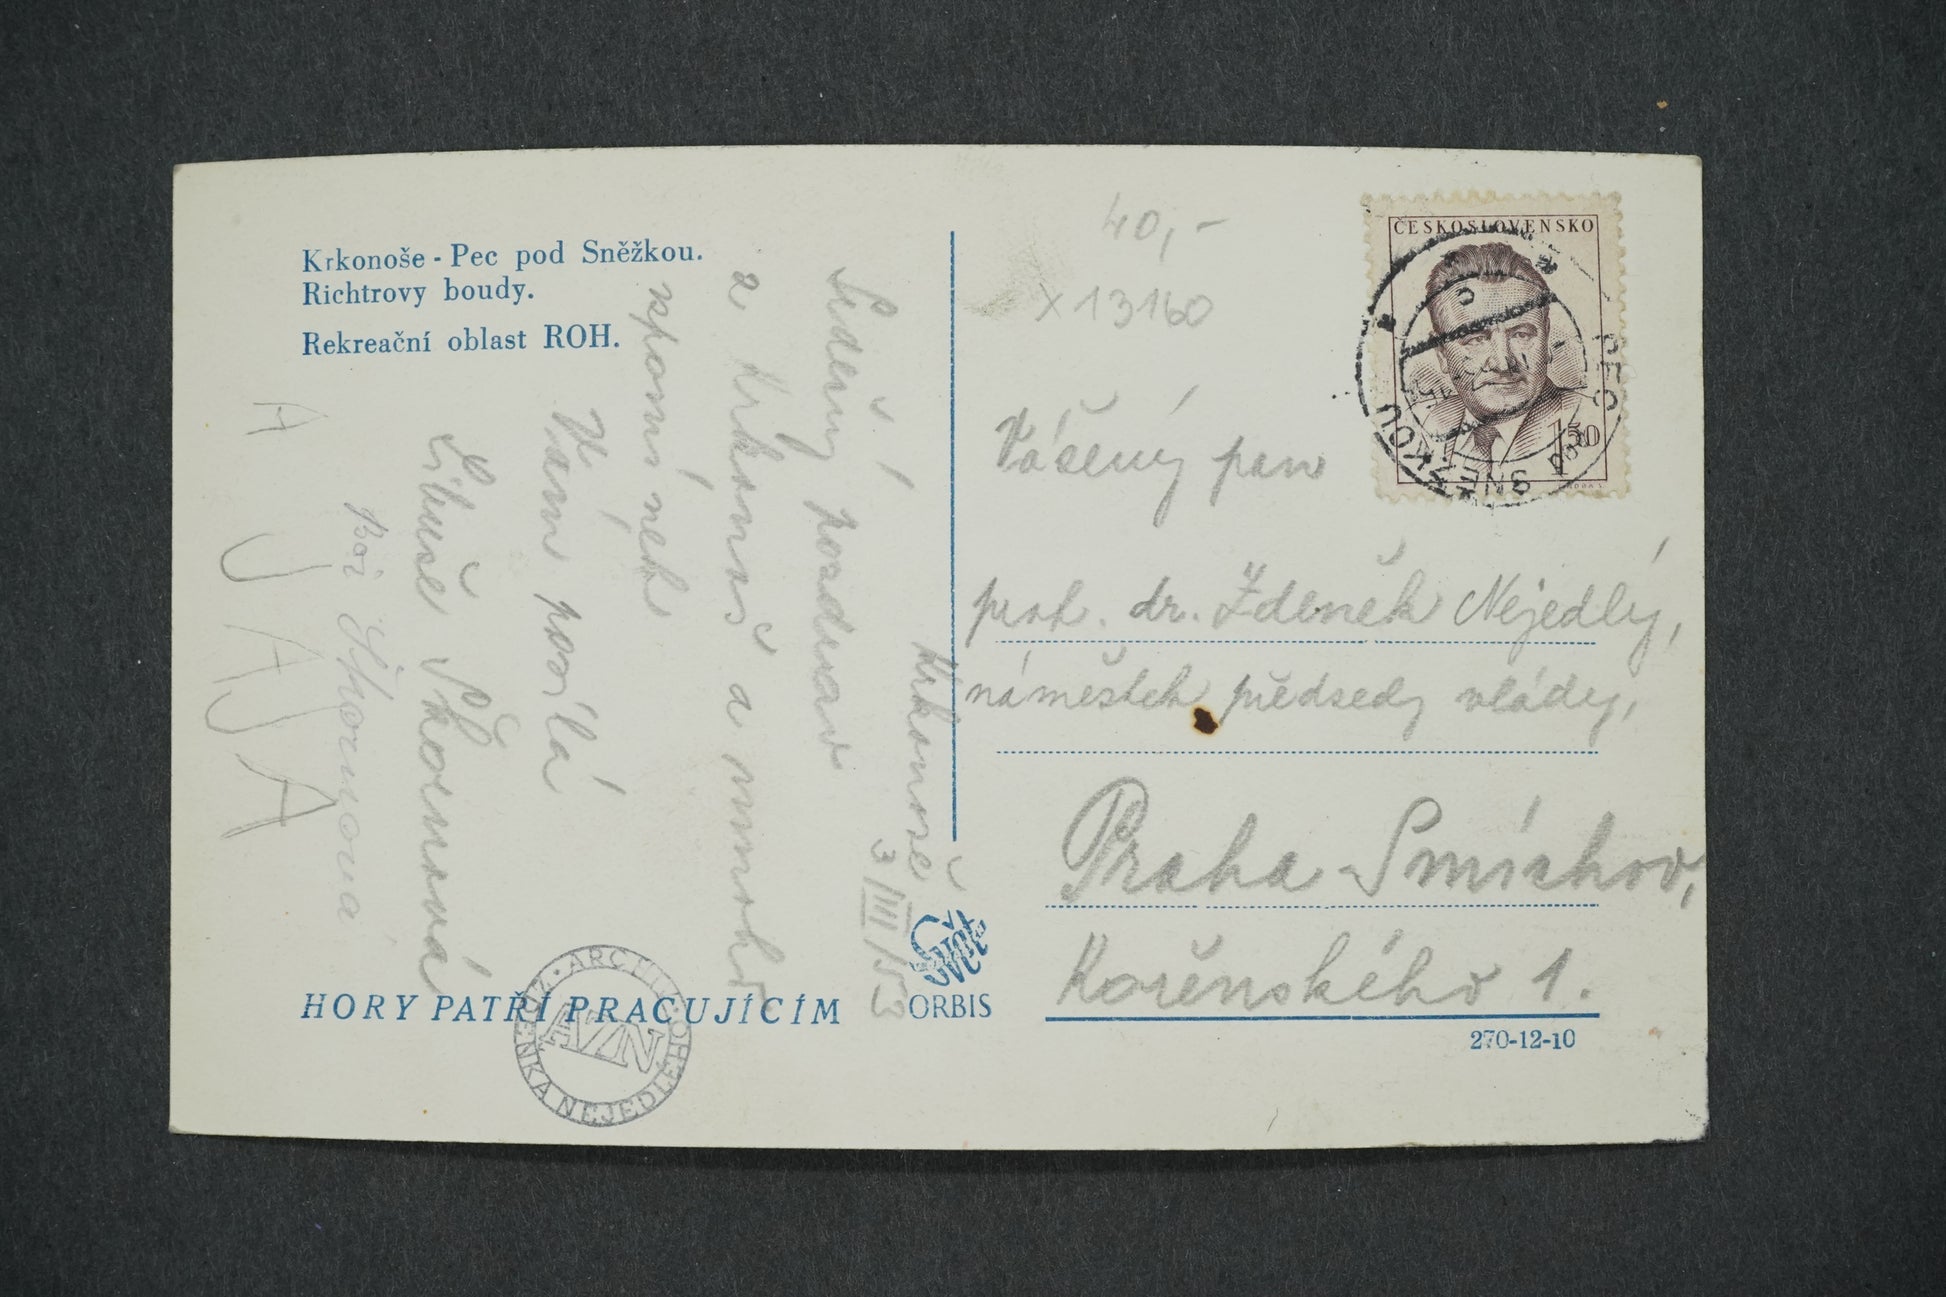 Krkonoše - Pec pod Sněžkou.
Richtrovy boudy.
Rekreační oblast ROH.
Krkonoše
3/III/53
Srdečný pozdrav
z Krkonoš a mnoho
vzpomínek
Vám posílá
Libuše Škornová
Škornová
HORY PATŘÍ PRACUJÍCÍM
ARCHIV ZDEŇKA NEJEDLÉHO
AZN
Svět
ORBIS
40,-
x 13160
ČESKOSLOVENSKO
1,50
PEC pod SNĚŽKOU
Vážený pan
prof. dr. Zdeněk Nejedlý,
náměstek předsedy vlády,
Praha-Smíchov,
Kořenského 1.
270-12-10